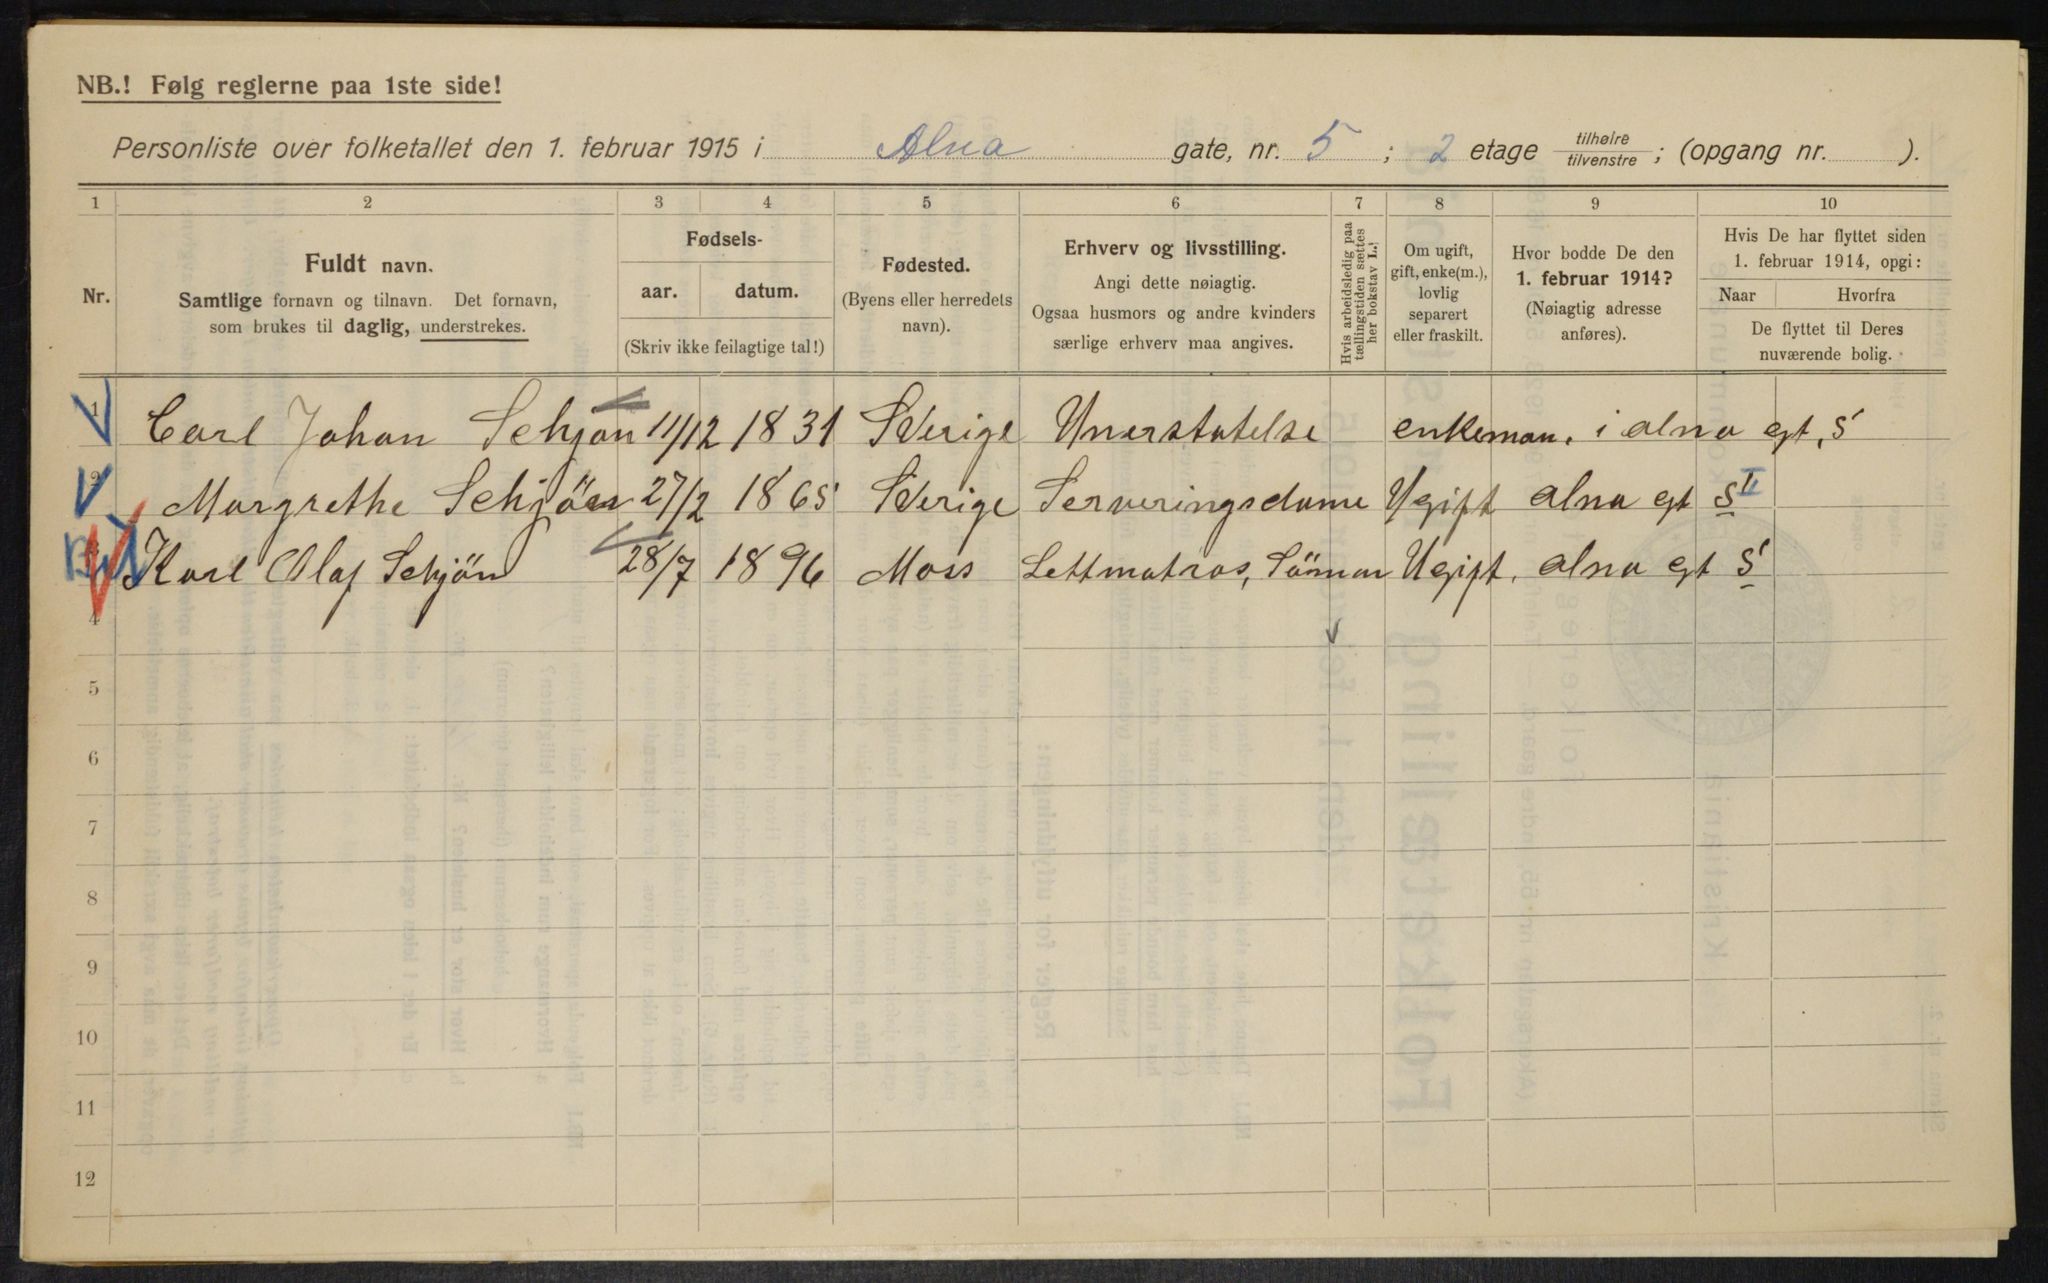 NB.! Følg reglerne paa 1ste side!
Personliste over folketallet den 1. februar 1915 i Alna gate, nr. 5 ; 2 etage tilhøire tilvenstre ; (opgang nr. ).
1 2 3 4 5 6 7 8 9 10
Nr.
Fuldt navn.
Samtlige fornavn og tilnavn. Det fornavn,
som brukes til daglig, understrekes.
Fødsels-
aar. datum.
(Skriv ikke feilagtige tal!)
Fødested.
(Byens eller herredets
navn).
Erhverv og livsstilling.
Angi dette nøiagtig.
Ogsaa husmors og andre kvinders
særlige erhverv maa angives.
Hvis arbeidsledig paa
tællingstiden sættes
her bokstav L.!
Om ugift,
gift, enke(m.),
lovlig
separert
eller fraskilt.
Hvor bodde De den
1. februar 1914?
(Nøiagtig adresse
anføres).
Hvis De har flyttet siden
1. februar 1914, opgi:
Naar Hvorfra
De flyttet til Deres
nuværende bolig.
1 Carl Johan Schjøn 11/12 1831 Sverige Unerstøtelse enkeman. i alna gt, 5
2 Margrethe Schjön 27/2 1865 Sverige Serveringsdame Ugift alna gt 5 II
3 Karl Olaf Schjön 28/7 1896 Moss Lettmatros, Söman Ugift. alna gt 5
4
5
6
7
8
9
10
11
12